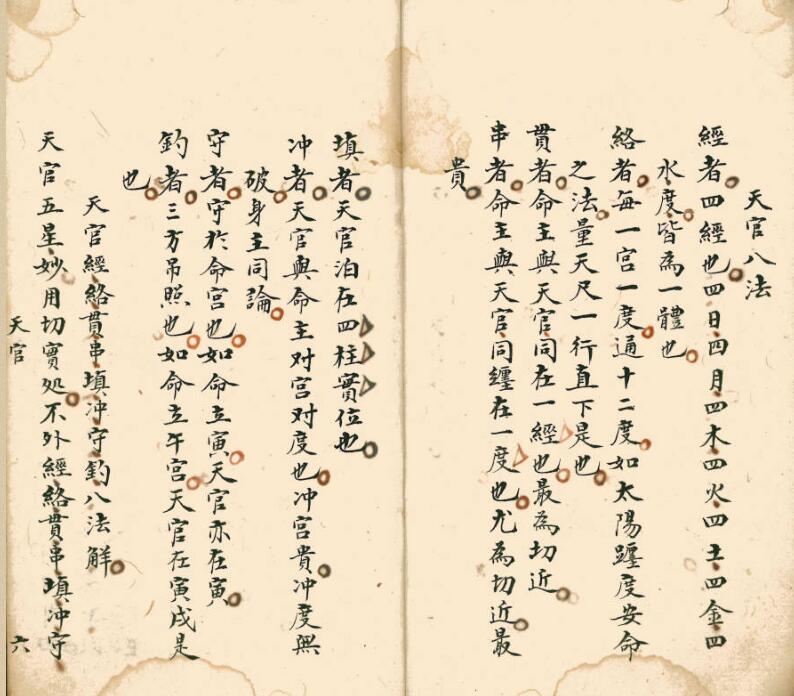 天官八法
經者四經也四日四月四木四火四土四金四
水度皆為一體也
絡者每一宮一度通十二度如太陽躔度安命
之法量天尺一行直下是也
貫者命主與天官同在一經也最為切近
串者命主與天官同纏在一度也尤為切近最
貴
填者天官泊在四柱實位也
冲者天官與命主对宮对度也冲宮貴冲度與
破身主同論
守者守於命宮也如命立寅天官亦在寅
釣者三方吊照也如命立午宮天官在寅戌是
也
天官經絡貫串填冲守釣八法解
天官五星妙用切實処不外經絡貫串填冲守
天官
六